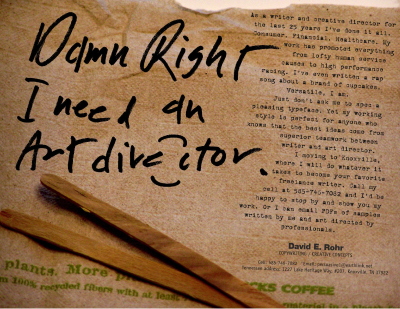 Damn Right
I need an
Art director.
As a writer and creative director for
the last 25 years I've done it all.
Consumer. Financial. Healthcare. My
work has promoted everything
from lofty human service
causes to high performance
racing. I've even written a rap
song about a brand of cupcakes.
Versatile, I am.
Just don't ask me to spec a
pleasing typeface. Yet my working
style is perfect for anyone who
knows that the best ideas come from
superior teamwork between
writer and art director.
I moving to Knoxville,
where I will do whatever it
takes to become your favorite
freelance writer. Call my
cell at 585-745-7062 and I'd be
happy to stop by and show you my
work. Or I can email PDFs of samples
written by me and art directed by
professionals.
David E. Rohr
COPYWRITING / CREATIVE CONCEPTS
plants. More
100% recycled fibers with at least
CKS COFFEE